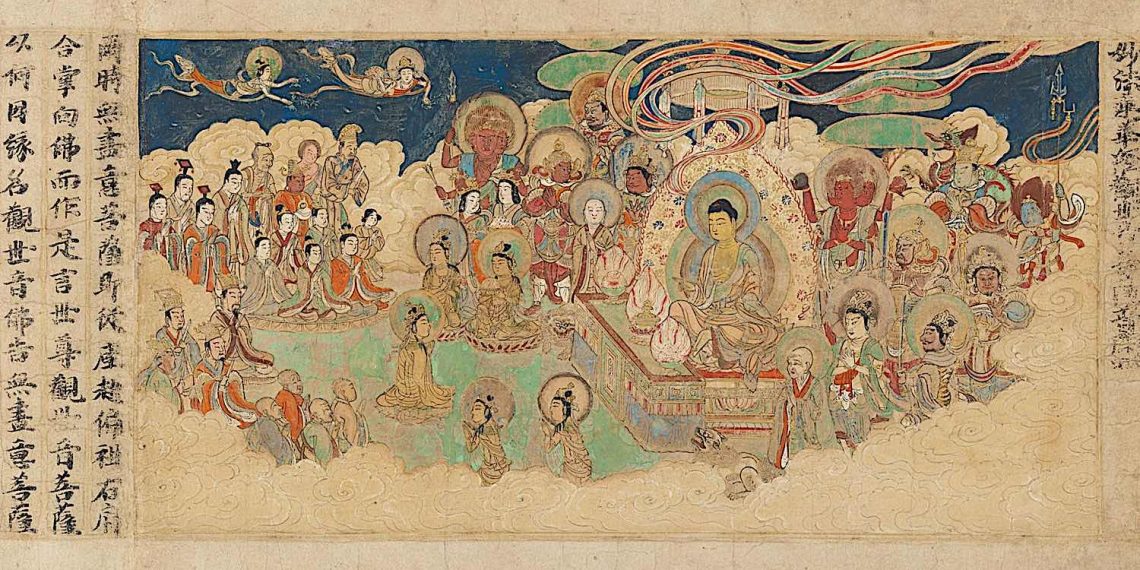 妙法蓮華經
爾時無盡意菩薩即從座起偏袒右肩
合掌向佛而作是言世尊觀世音菩薩
以何因緣名觀世音佛告無盡意菩薩